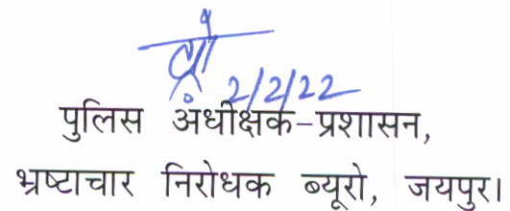 2/2/22
पुलिस अधीक्षक-प्रशासन,
भ्रष्टाचार निरोधक ब्यूरो, जयपुर।